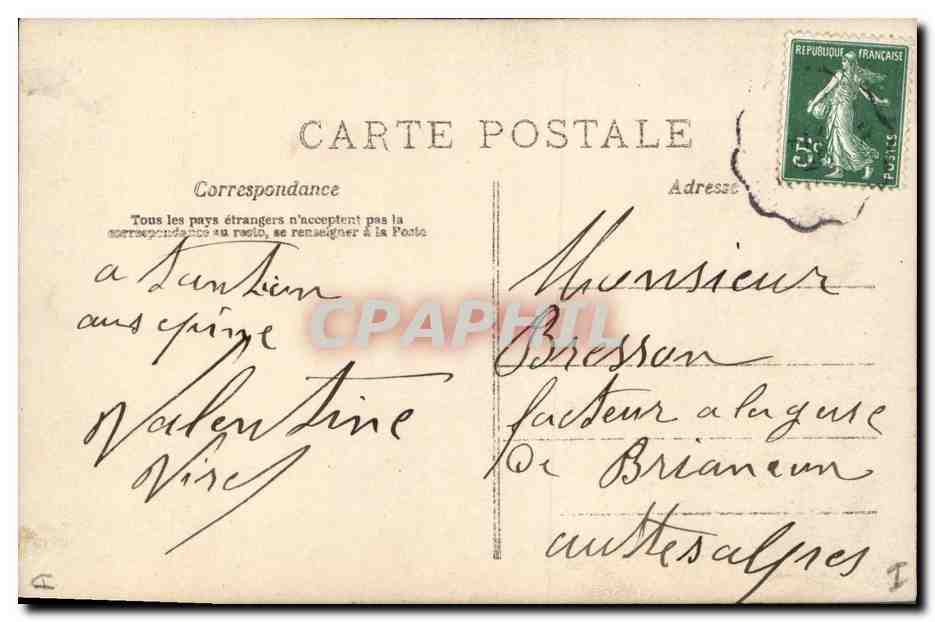 REPUBLIQUE FRANÇAISE
5c
POSTES
CARTE POSTALE
Correspondance
Adresse
Tous les pays étrangers n'acceptent pas la
correspondance au recto, se renseigner à la Poste
a
Valentine
CPAPHIL
Monsieur
Bresson
facteur a la guse
De Briancun
auttes alpes